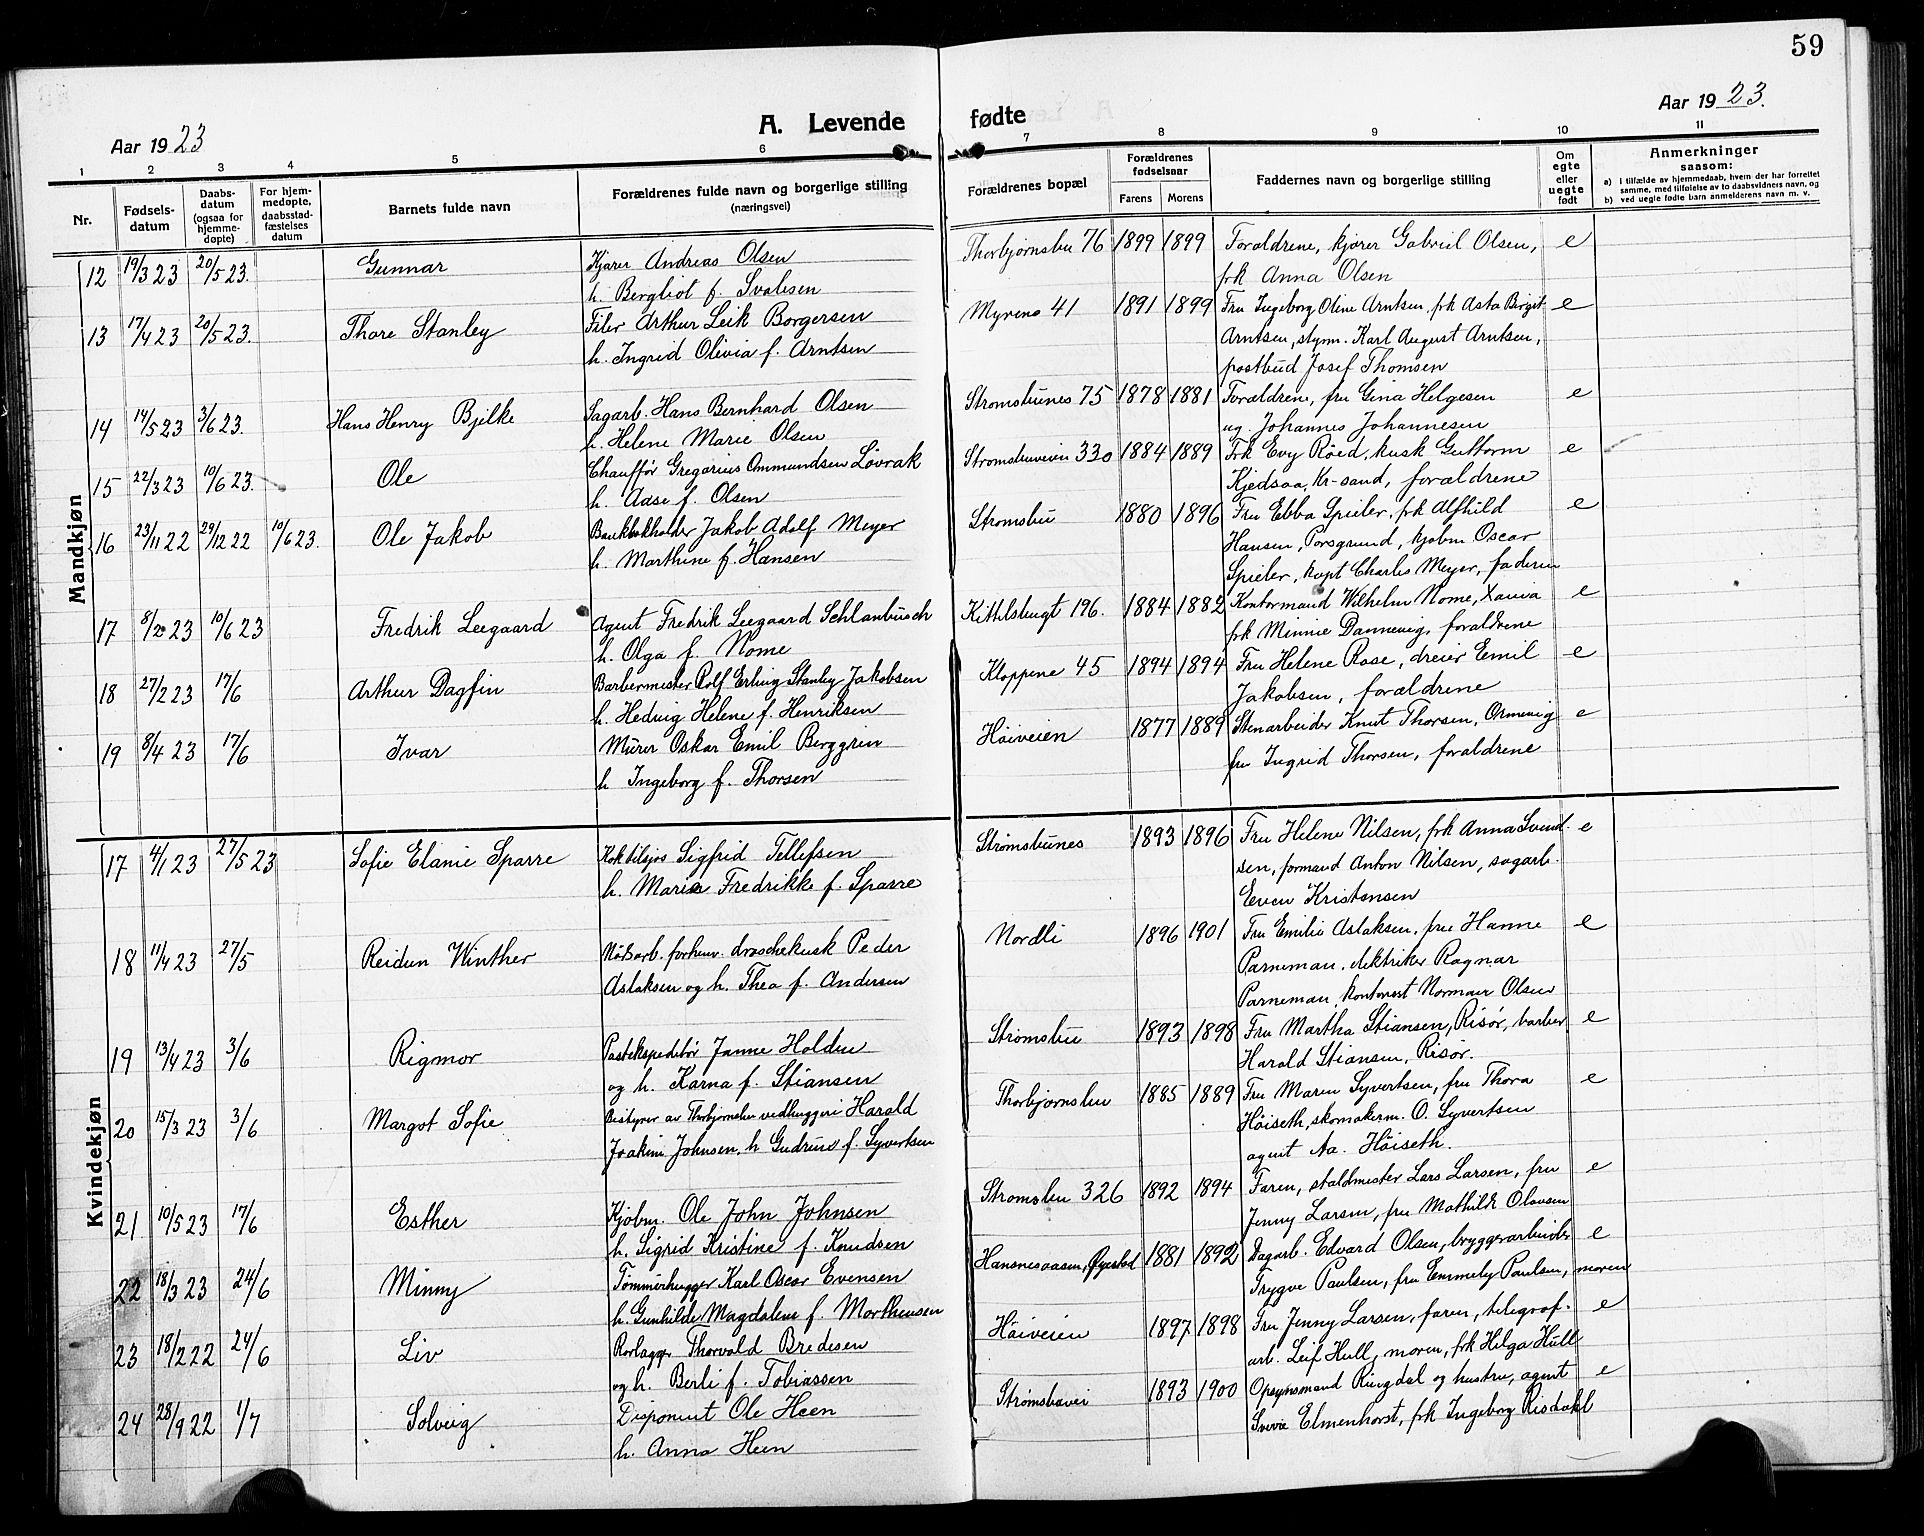 59
Aar 1923
A. Levende fødte
Aar 1923.
1 2 3 4 5 6 7 8 9 10 11
Nr.
Fødsels-
datum
Daabs-
datum
(ogsaa for
hjemme-
døpte)
For hjem-
medøpte,
daabsstad-
fæstelses
datum
Barnets fulde navn
Forældrenes fulde navn og borgerlige stilling
(næringsvei)
Forældrenes bopæl
Forældrenes
fødselsaar
Farens Morens
Faddernes navn og borgerlige stilling
Om
egte
eller
uegte
født
Anmerkninger
saasom:
a) I tilfælde av hjemmedaab, hvem der har forrettet
samme, med tilføielse av to daabsvidners navn, og
b) ved uegte fødte barn anmelderens navn m. v.
Mandkjøn
12 19/3 23 20/5 23. Gunnar Kjører Andreas Olsen Thorbjørnsbu 76 1899 1899 Forældrene, kjører Gabriel Olsen, e
h. Bergliot f. Svalesen frk Anna Olsen
13 17/4 23 20/5 23. Thore Stanley Filer Arthur Leik Borgersen Myrene 41 1891 1899 Fru Ingeborg Oline Arntsen, frk Asta Birgit e
h. Ingrid Olivia f. Arntsen Arntsen, styrm. Karl August Arntsen,
postbud Josef Thomsen
14 14/5 23 3/6 23. Hans Henry Bjelke Sagarb. Hans Bernhard Olsen Strømsbunes 75 1878 1881 Forældrene, fru Gina Helgesen e
h. Helene Marie Olsen ug. Johannes Johannesen
15 22/3 23 10/6 23. Ole Chauffør Gregarius Ommundsen Løvrak Strømsbuveien 330 1884 1889 Frk Evy Røed, kusk Guttorm e
h. Aase f. Olsen Kjedsaa, Kr-sand, forældrene
16 23/11 22 29/12 22 10/6 23. Ole Jakob Bankbokholder Jakob Adolf Meyer Strømsbu 1880 1896 Fru Ebba Spieler, frk Alfhild e
h. Marthine f. Hansen Hansen, Porsgrund, kjøbm Oscar
Spieler, kapt Charles Meyer, faderen
17 8/2 23 10/6 23 Fredrik Leegaard Agent Fredrik Leegaard Schlanbusch Kittelsbugt 196. 1884 1882 Kontormand Wilhelm Nome, e
h. Olga f. Nome frk Minnie Dannevig, forældrene
18 27/2 23 17/6 Arthur Dagfin Barbermester Rolf Erling Stanley Jakobsen Kloppene 45 1894 1894 Fru Helene Rose, dreier Emil e
h. Hedvig Helene f. Henriksen Jakobsen, forældrene
19 8/4 23 17/6 Ivar Murer Oskar Emil Berggren Høiveien 1877 1889 Stenarbeider Knut Thorsen, Ormevig e
h Ingeborg f. Thorsen fru Ingrid Thorsen, forældrene
Kvindekjøn
17 4/1 23 27/5 23 Sofie Elanie Sparre Kok tilsjøs Sigfrid Tellefsen Strømsbunes 1893 1896 Fru Helene Nilsen, frk Anna Svend- e
h. Maria Fredrikke f. Sparre sen, formand Anton Nilsen, sagarb.
Even Kristensen
18 11/4 23 27/5 Reidun Winther forhenv. droschekusk Peder Nordli 1896 1901 Fru Emilie Aslaksen, fru Hanne e
Aslaksen og h. Thea f. Andersen Parneman, elektriker Ragnar
Parneman, kontorist Normann Olsen
19 13/4 23 3/6 Rigmor Postekspeditør Janne Holden Strømsbu 1893 1898 Fru Martha Stiansen, Risør, barber e
og h. Karna f. Stiansen Harald Stiansen, Risør.
20 15/3 23 3/6 Margot Sofie Bestyrer av Thorbjørnsbu vedhuggeri Harald Thorbjørnsbu 1885 1889 Fru Maren Syvertsen, fru Thora e
Joakim Johnsen, h Gudrun f. Syvertsen Høiseth, skomakerm. O. Syvertsen
agent Aa. Høiseth.
21 10/5 23 17/6 Esther Kjøbm. Ole John Johnsen Strømsbu 326 1892 1894 Faren, staldmester Lars Larsen, fru e
h. Sigrid Kristine f. Knudsen Jenny Larsen, fru Mathilde Olavsen
22 18/3 23 24/6 Minny Tømmerhugger Karl Oscar Evensen Hansnesaasen, Øyestad 1881 1892 Dagarb. Edvard Olsen, bryggerarbeider e
h. Gunhilde Magdalene f. Morthensen Trygve Paulsen, fru Emmely Paulsen, moren
23 18/2 22 24/6 Liv Rørlægger Thorvald Bredesen Høiveien 1897 1898 Fru Jenny Larsen, faren, telegraf- e
og h. Berli f. Tobiassen arb. Leif Hull, moren, frk Helga Hull
24 28/9 22 1/7 Solveig Disponent Ole Heen Strømsbuvei 1893 1900 Opsynsmand Ringdal og hustru, agent e
h. Anna Heen Sverre Elmenhorst, frk Ingeborg Risdahl